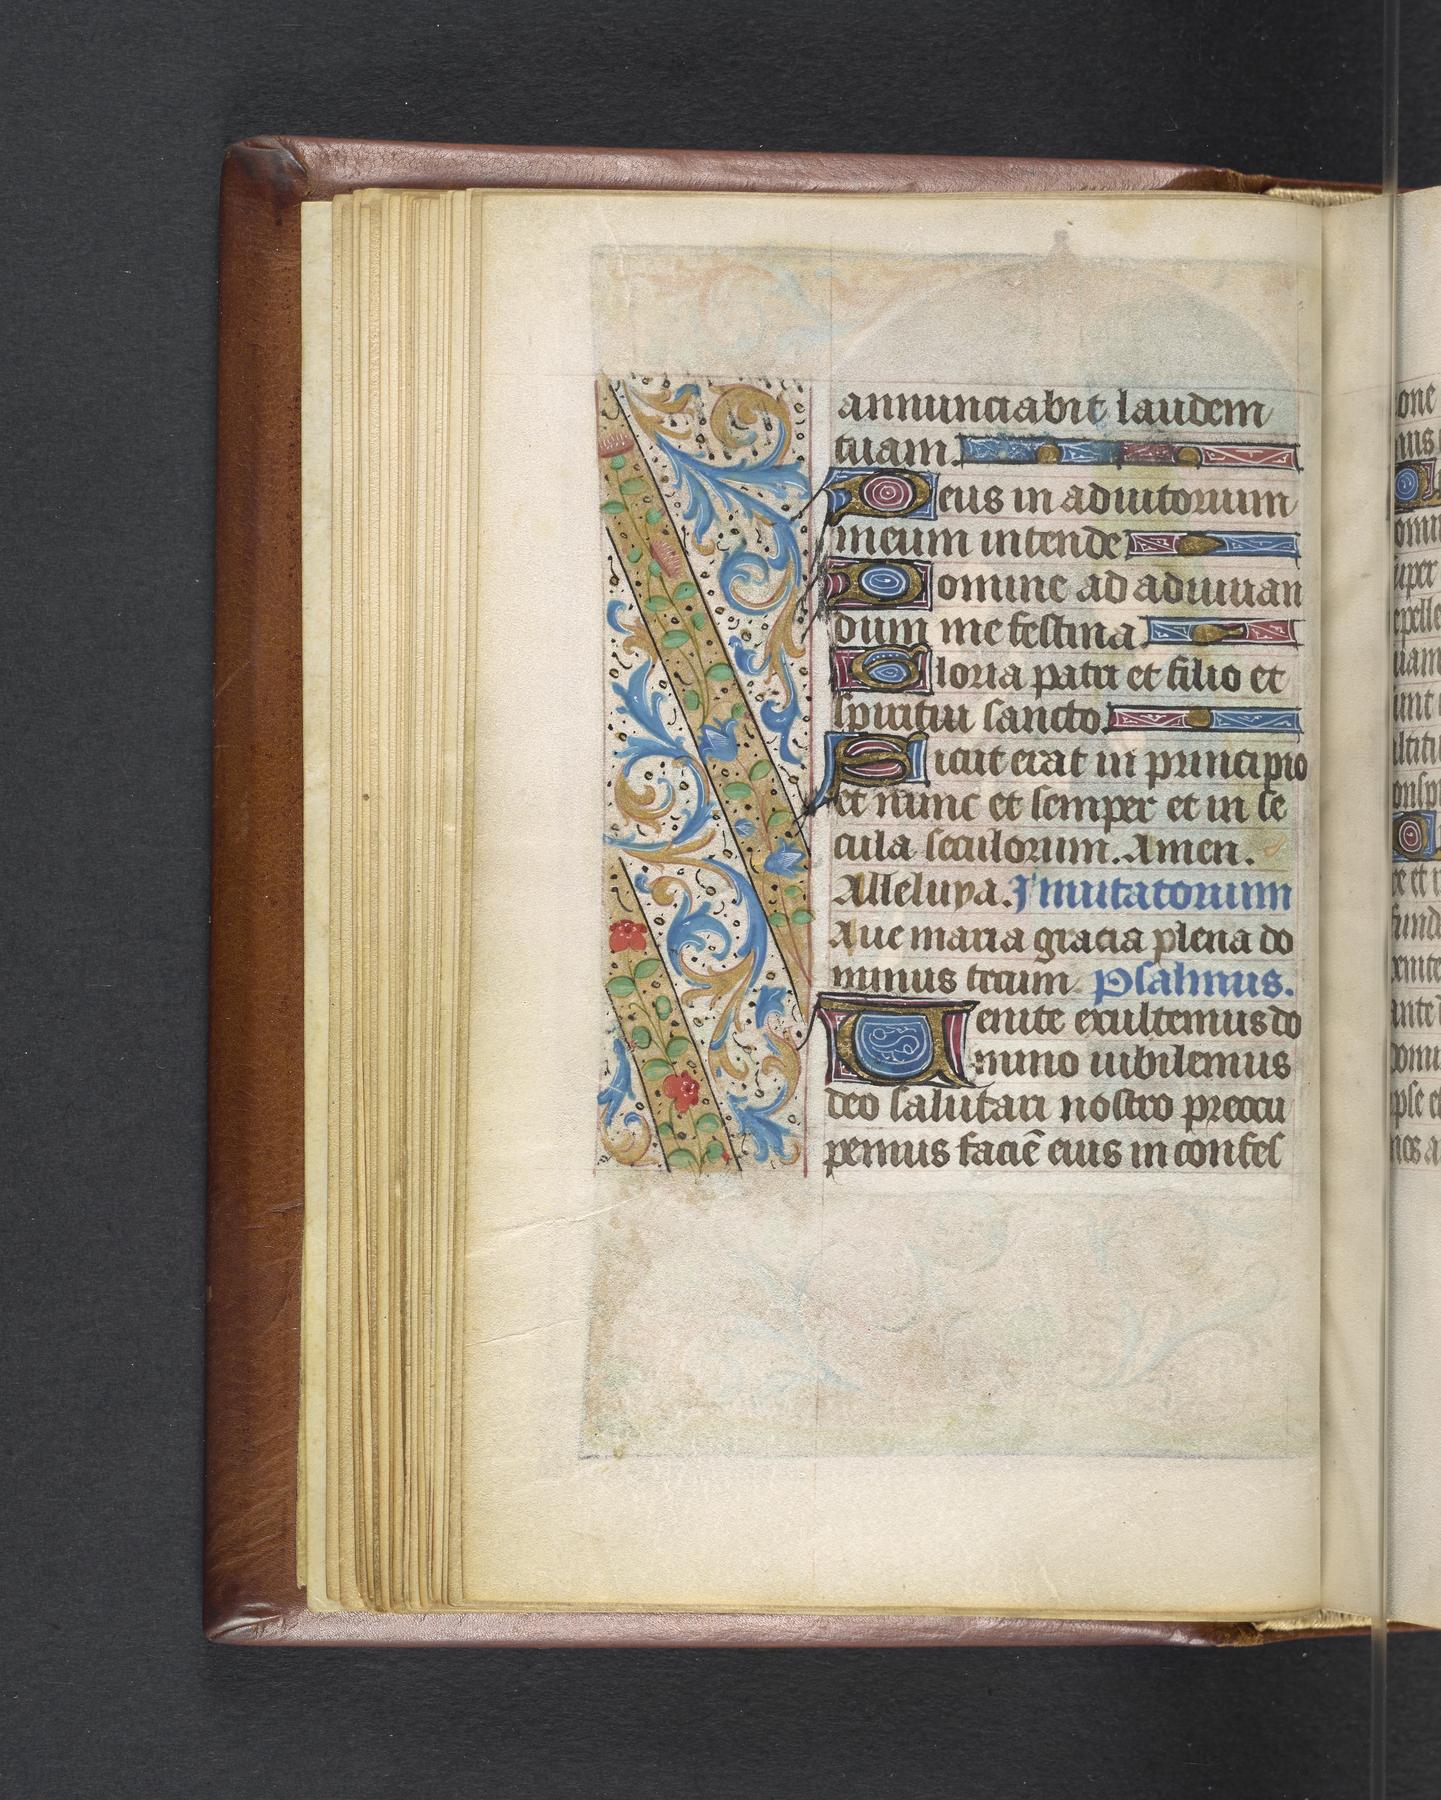 annunciabit laudem
tuam.
Deus in adiutorium
meum intende
Domine ad adiuuan
dum me festina
Gloria patri et filio et
spiritui sancto.
Sicut erat in principio
et nunc et semper et in se
cula seculorum. Amen.
Alleluya. Inuitatorium
Aue maria gracia plena do
minus tecum. Psalmus.
Venite exultemus do
mino iubilemus
deo salutari nostro preocu
pemus faciē eius in confes